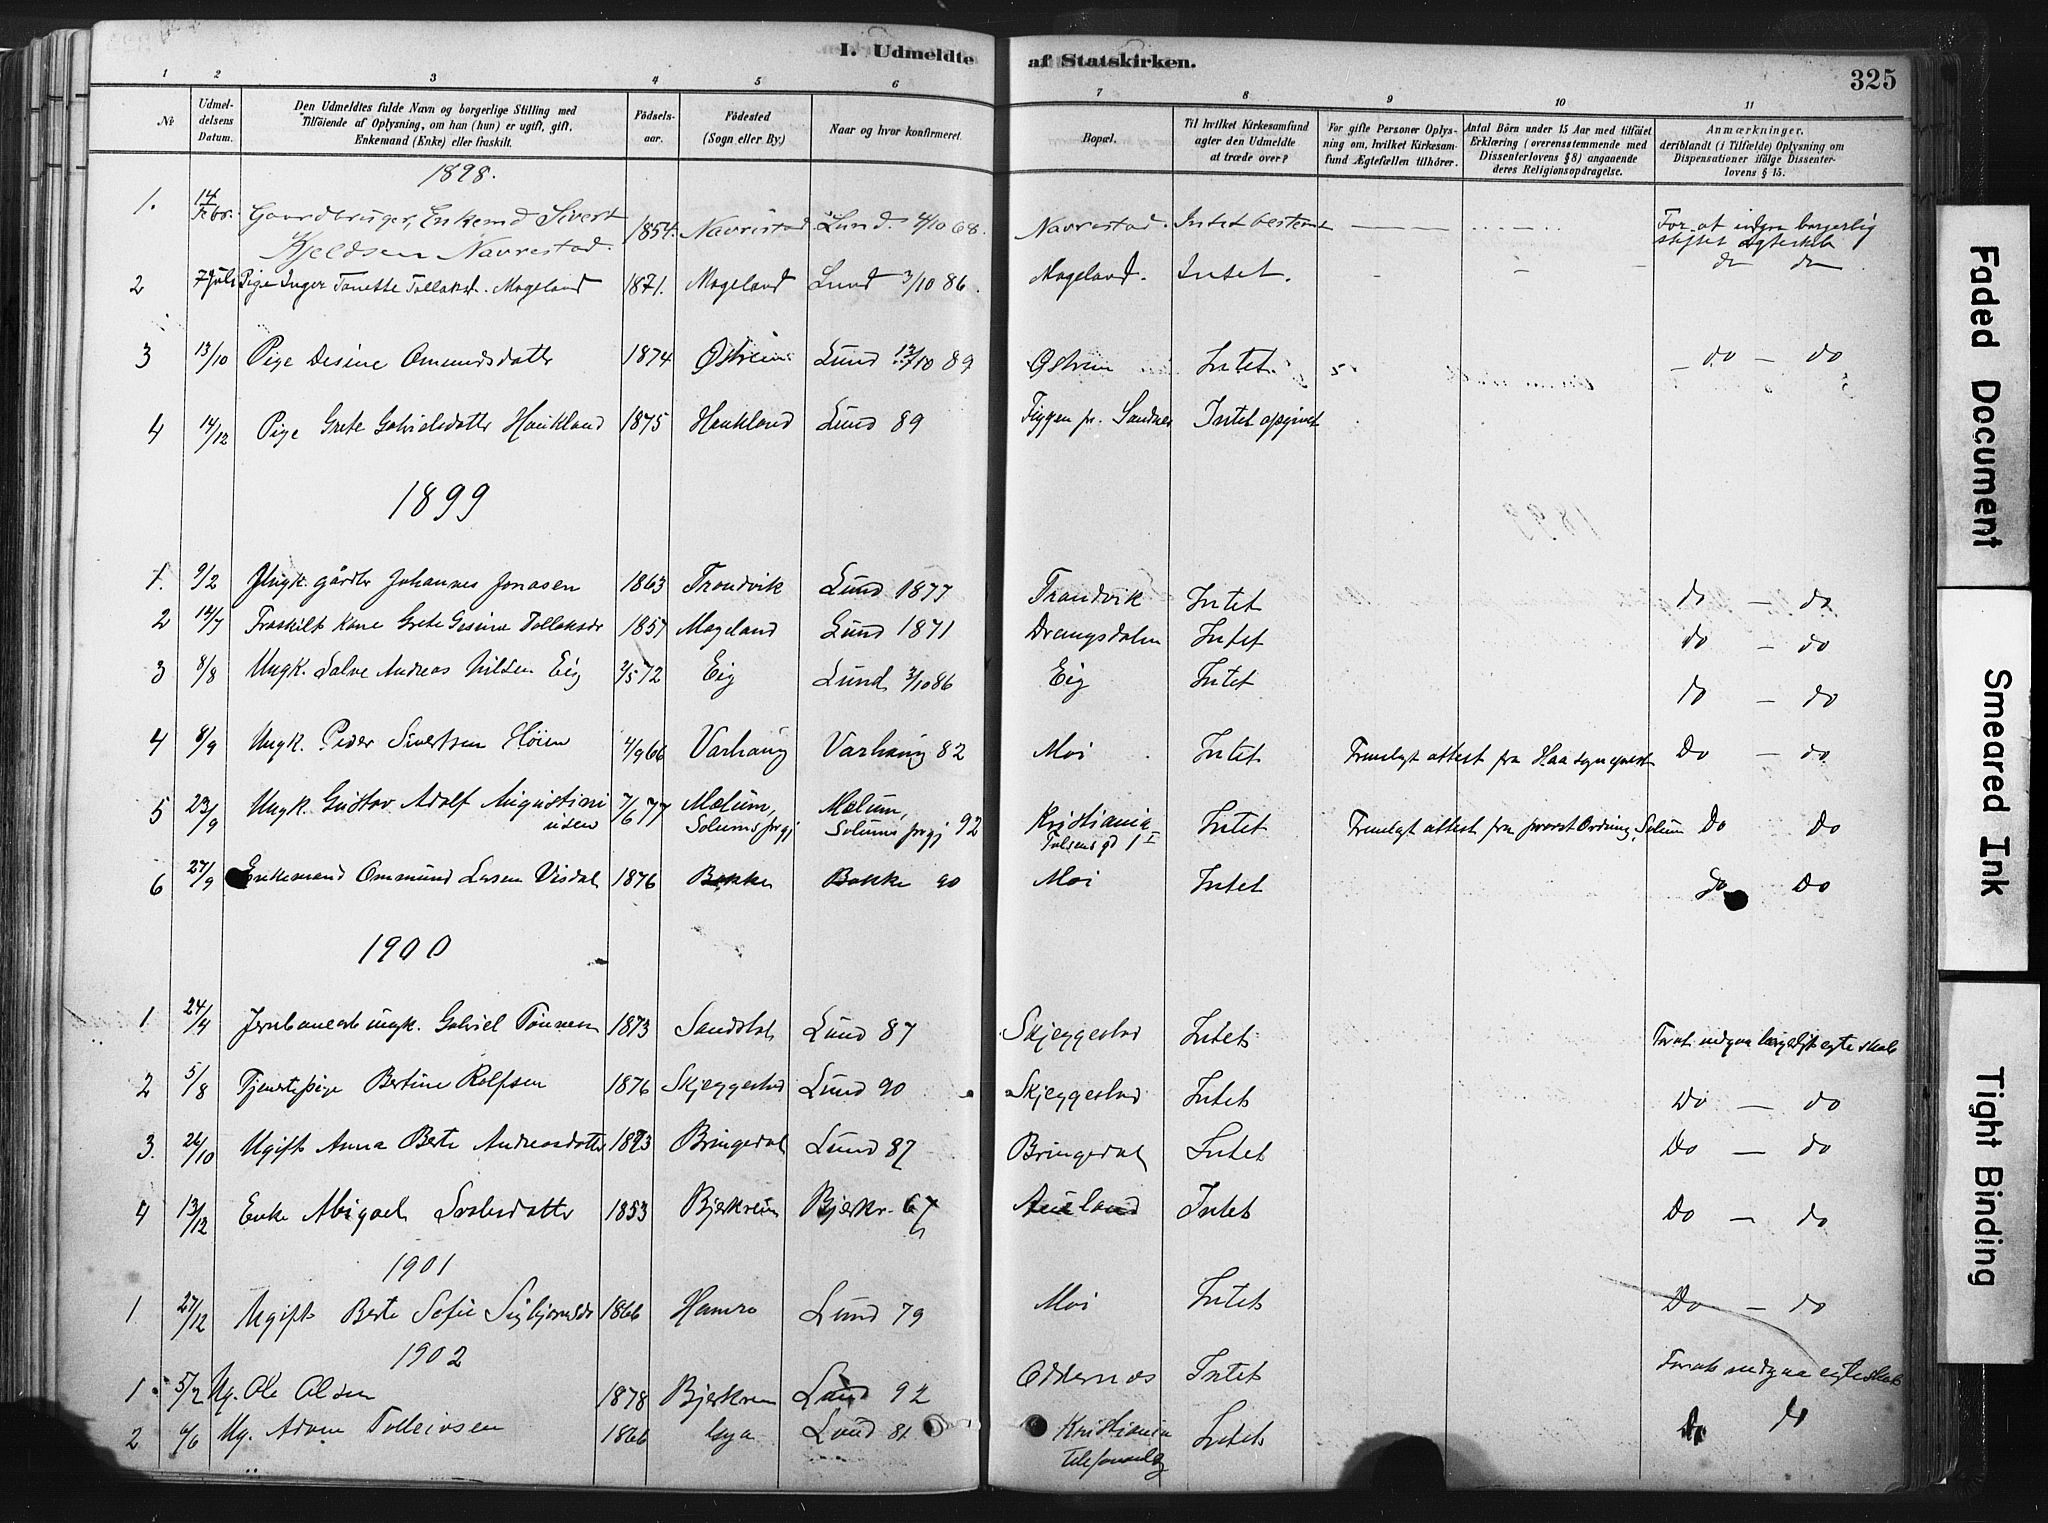 I. Udmeldte af Statskirken.
325
1 2 3 4 5 6 7 8 9 10 11
No
Udmeldelsens Datum.
Den Udmeldtes fulde Navn og borgerlige Stilling med
Tilföiende af Oplysning, om han (hun) er ugift, gift,
Enkemand (Enke) eller fraskilt.
Födselsaar.
Födested
(Sogn eller By.)
Naar og hvor konfirmeret.
Bopæl.
Til hvilket Kirkesamfund
agter den Udmeldte
at træde over?
For gifte Personer Oplys-
ning om, hvilket Kirkesam-
fund Ægtefællen tilhörer.
Antal Börn under 15 Aar med tilföiet
Erklæring (overensstemmende med
Dissenterlovens §8) angaaende
deres Religionsopdragelse.
Anmærkninger,
deriblandt (i Tilfælde) Oplysning om
Dispensationer ifölge Dissenter-
lovens § 15.
1898.
1. 14 Febr. Gaardbruger, Enkemd Sivert Kjeldsen Navrestad. 1854. Navrestad Lund. 4/10 68. Navrestad. Intet bestemt For at indgaa borgerlig stiftet Ægteskab
2 7 Juli Pige Inger Tonette Tollaksd. Mogeland 1871. Mogeland Lund 3/10 86. Mogeland. Intet. do do
3 13/10 Pige Desine Omundsdatter 1874 Østrem Lund 13/10 89 Østrem Intet. do — do
4 14/12 Pige Grete Gabrielsdatter Haukland 1875 Haukland Lund 89 Figgen pr. Sandnes Intet opgivet
1899
1. 9/2 Ungk. gårdbr Johannes Jonasen 1863 Trondvik Lund 1877 Trondvik Intet do — do
2 12/7 Fraskilt Kone Grete Gesine Tollaksdr 1857 Mogeland Lund 1871 Drangsdalen Intet do — do
3 8/8 Ungk. Salve Andreas Nilsen Eig 2/5 72 Eig Lund 3/10 86 Eig Intet do — do
4 8/9 Ungk. Peder Sivertsen Höien 4/9 66 Varhaug Varhaug 82 Moi Intet Fremlagt attest fra Haa sogneprest Do — do
5 23/9 Ungk. Gustav Adolf Augustiniusen 7/6 77 Mælum, Solums prgj Mælum, Solums prgj 92 Kristiania Intet Fremlagt attest fra provst Ording, Solum Do Do
6 27/9 Enkemand Ommund Larsen Visdal 1876 Bakke Bakke 90 Moi Intet Do Do
1900
1 24/4 Jernbanearb ungk. Gabriel Tönnesen 1873 Sandstøl Lund 87 Skjeggestad Intet For at indgaa borgerligt egteskab
2 5/8 Tjenestepige Bertine Rolfsen 1876 Skjeggestad Lund 90 Skjeggestad Intet Do — do
3. 26/10 Ugift Anna Berte Andreasdatter 1873 Bringedal Lund 87 Bringedal Intet Do — do
4 13/12 Enke Abigael 1853 Bjerkreim Bjerkr. 67 Aueland Intet Do — do
1901
1 27/12 Ugift Berte Sofie Sigbjørnsdr 1866 Hamre Lund 79 Moi Intet Do — do
1902
1 5/2 Ug. Ole Olsen 1878 Bjerkrem Lund 92 Oddernes Intet For at indgaa egteskab
2 6/6 Ug. Adam Tolleivsen 1866 Eya Lund 81 Kristiania Intet Do do
Faded Document
Smeared Ink
Tight Binding